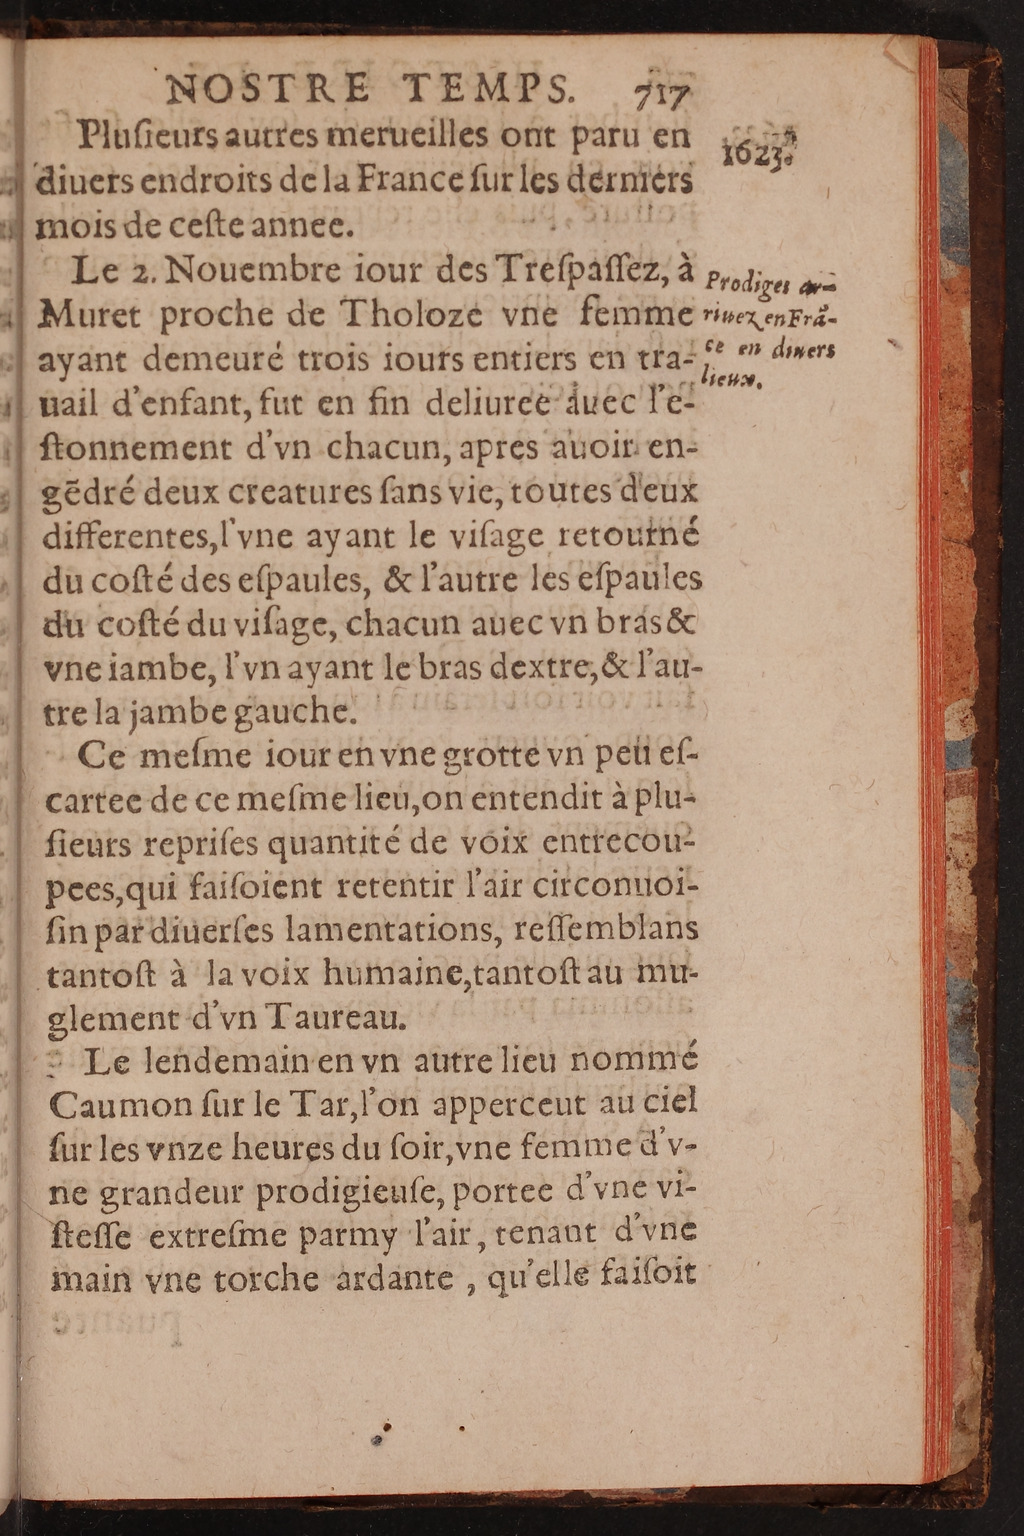 NOSTRE TEMPS. 717
Pluſieurs autres merueilles ont paru en
1623.
diuers endroits de la France ſur les derniers
mois de ceſte annee.
Le 2. Nouembre iour des Treſpaſſez, à
Muret proche de Tholoze vne femme
ayant demeuré trois iours entiers en tra-
uail d'enfant, fut en fin deliuree auec l'e-
ſtonnement d'vn chacun, apres auoir en-
gẽdré deux creatures ſans vie, toutes deux
differentes, l'vne ayant le viſage retourné
du coſté des eſpaules, & l'autre les eſpaules
du coſté du viſage, chacun auec vn bras &
vne iambe, l'vn ayant le bras dextre, & l'au-
tre la jambe gauche.
Prodiges ar-
riuez en Frã-
ce en diuers
lieux.
Ce meſme iour en vne grotte vn peu eſ-
cartee de ce meſme lieu, on entendit à plu-
ſieurs repriſes quantité de voix entrecou-
pees, qui faiſoient retentir l'air circonuoi-
ſin par diuerſes lamentations, reſſemblans
tantoſt à la voix humaine, tantoſt au mu-
glement d'vn Taureau.
Le lendemain en vn autre lieu nommé
Caumon ſur le Tar, l'on apperceut au ciel
ſur les vnze heures du ſoir, vne femme d'v-
ne grandeur prodigieuſe, portee d'vne vi-
ſteſſe extreſme parmy l'air, tenant d'vne
main vne torche ardante, qu'elle faiſoit